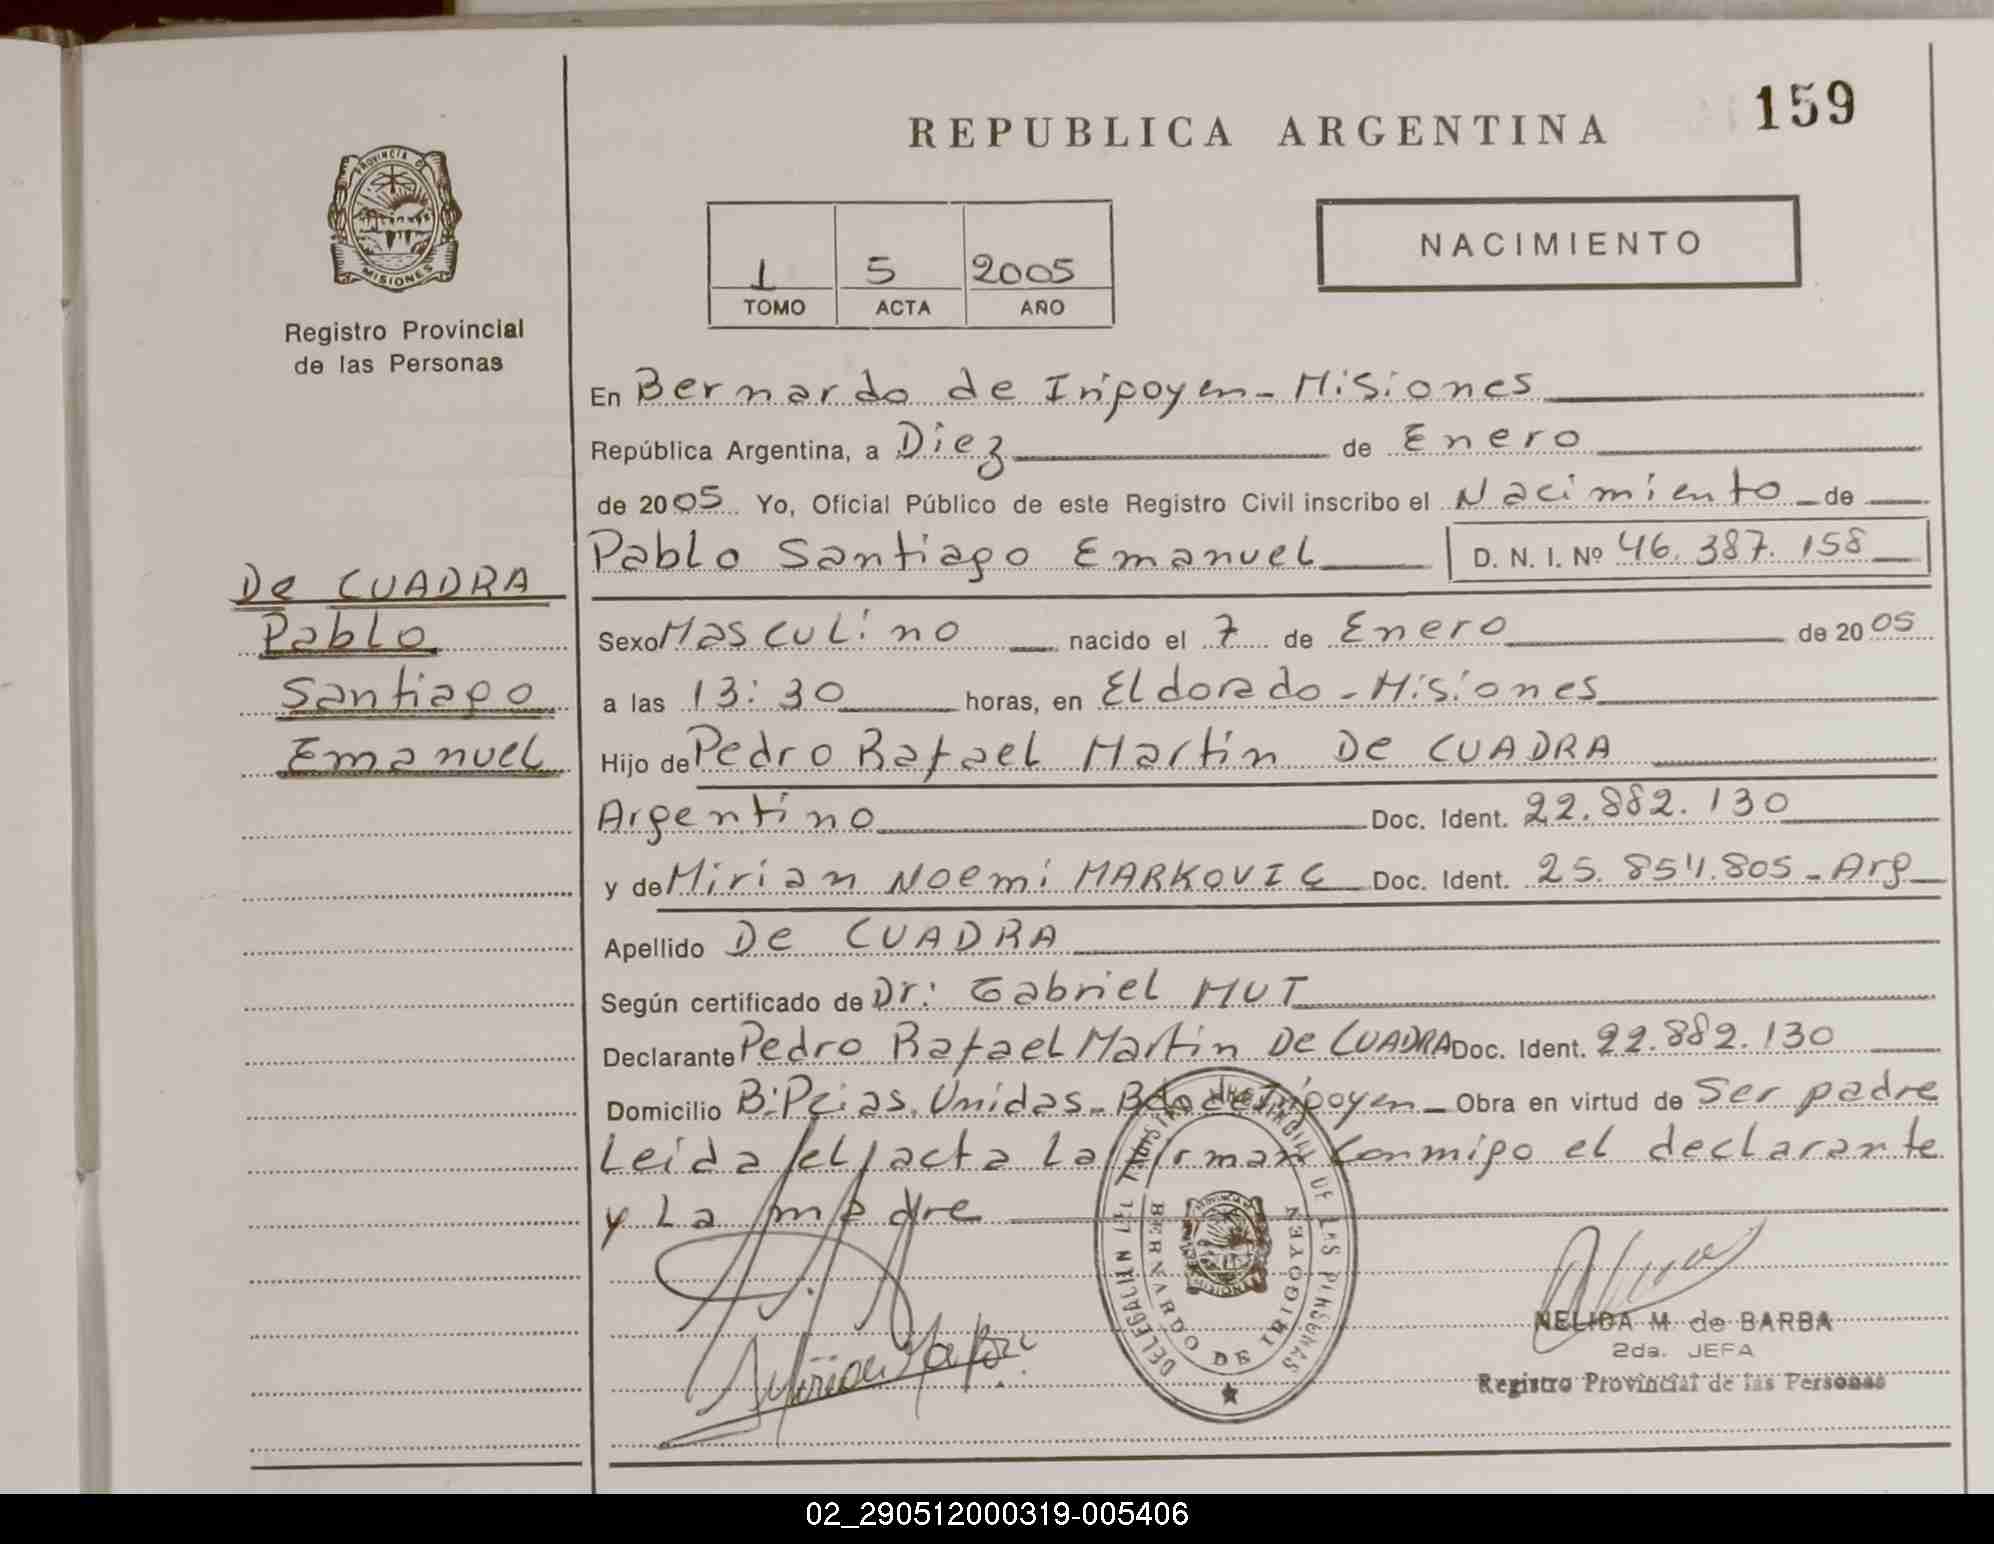 159
REPUBLICA ARGENTINA
PROVINCIA DE
MISIONES
Registro Provincial
de las Personas
NACIMIENTO
1 5 2005
TOMO ACTA AÑO
En Bernardo de Iripoyen - Misiones
República Argentina, a Diez de Enero
de 2005 Yo, Oficial Público de este Registro Civil inscribo el Nacimiento de
Pablo Santiago Emanuel D. N. I. Nº 46.387.158
De CUADRA
Pablo
Santiago
Emanuel
Sexo Masculino nacido el 7 de Enero de 2005
a las 13:30 horas, en Eldorado - Misiones
Hijo de Pedro Rafael Martin De CUADRA
Argentino Doc. Ident. 22.882.130
y de Mirian Noemi MARKOVIC Doc. Ident. 25.854.805 - Arg
Apellido De CUADRA
Según certificado de Dr: Gabriel MUT
Declarante Pedro Rafael Martin De CUADRA Doc. Ident. 22.882.130
Domicilio B: Pcias. Unidas - Bdo de Iripoyen - Obra en virtud de Ser padre
Leida el acta La firman Conmigo el declarante
y La madre
DELEGACION REGISTRO PROVINCIAL DE LAS PERSONAS
BERNARDO DE IRIGOYEN
NELIDA M. de BARBA
2da. JEFA
Registro Provincial de las Personas
02_290512000319-005406